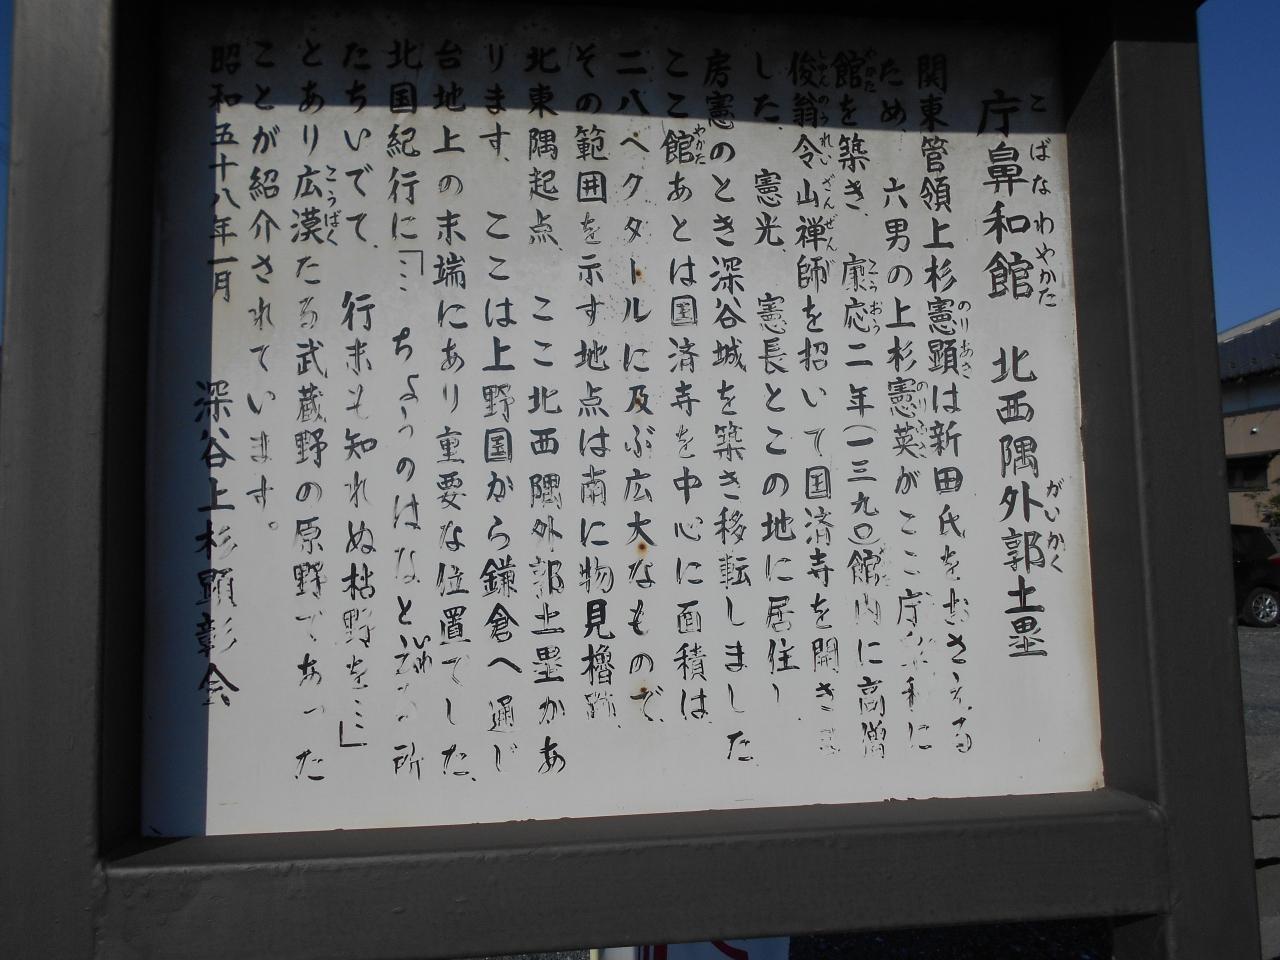 庁鼻和館 北西隅外郭土塁
関東管領上杉憲顕は新田氏をおさえる
ため、六男の上杉憲英がここ庁鼻和に
館を築き、康応二年(一三九〇)館内に高僧
俊翁令山禅師を招いて国済寺を開きま
した。憲光、憲長とこの地に居住し、
房憲のとき深谷城を築き移転しました
ここ館あとは国済寺を中心に面積は
二八ヘクタールに及ぶ広大なもので、
その範囲を示す地点は南に物見櫓跡、
北東隅起点、ここ北西隅外郭土塁があ
ります。ここは上野国から鎌倉へ通じ
台地上の末端にあり重要な位置でした、
北国紀行に「… ちょうのはなといわる所
たちいでて、行末も知れぬ枯野を…」
とあり広漠たる武蔵野の原野であった
ことが紹介されています。
昭和五十八年一月 深谷上杉顕彰会